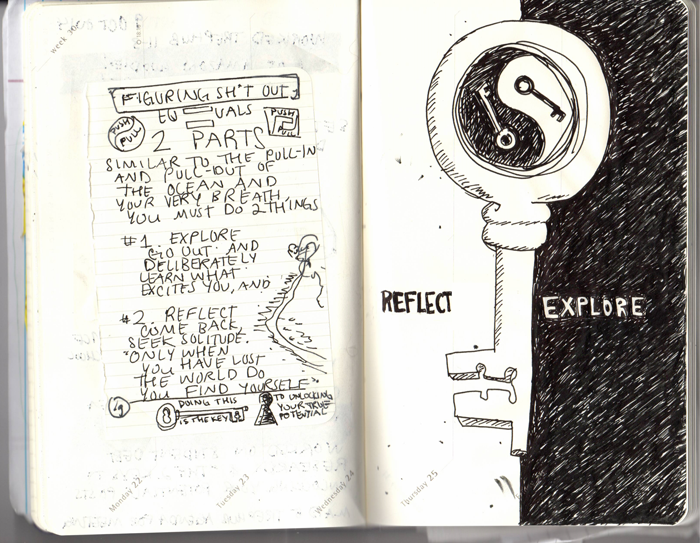 week 30
FIGURING SH*T OUT
EQUALS
PUSH PULL
PUSH PULL
2 PARTS
SIMILAR TO THE PULL-IN
AND PULL-OUT OF
THE OCEAN AND
YOUR VERY BREATH,
YOU MUST DO 2 THINGS
#1. EXPLORE
GO OUT AND
DELIBERATELY
LEARN WHAT
EXCITES YOU, AND
#2. REFLECT
COME BACK,
SEEK SOLITUDE.
"ONLY WHEN
YOU HAVE LOST
THE WORLD DO
YOU FIND YOURSELF"
DOING THIS
IS THE KEY
TO UNLOCKING
YOUR TRUE
POTENTIAL
Monday 22
Tuesday 23
Wednesday 24
Thursday 25
REFLECT
EXPLORE